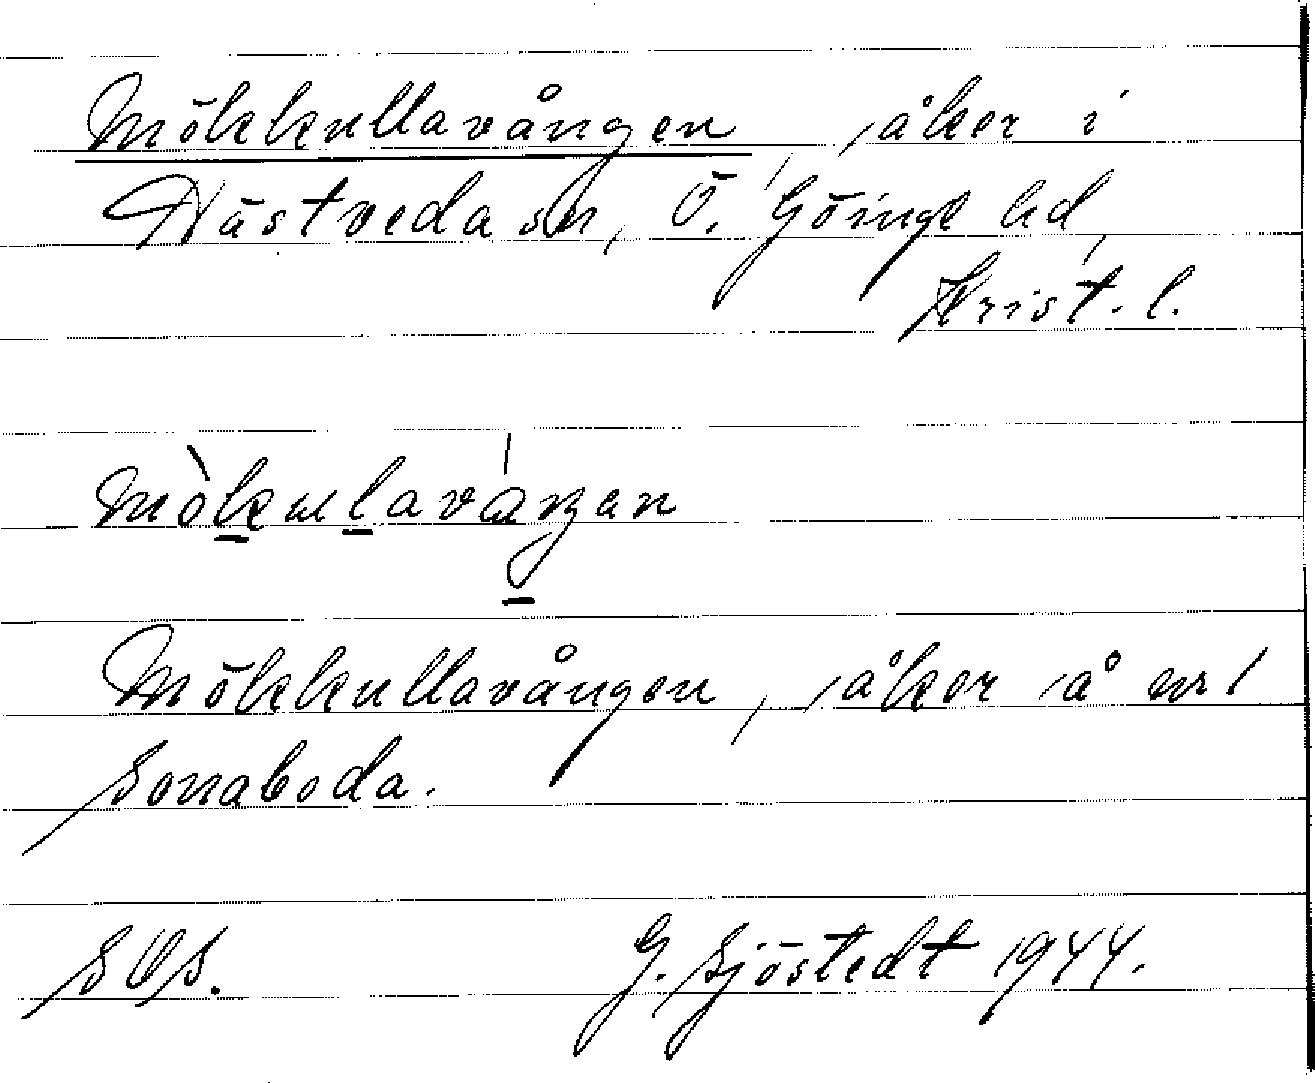 Mökkullavången, åker i
Hästveda sn, Ö. Göinge hd,
Krist. l.
mòkulaváŋan
Mökkullavången, åker å nr 1
Sonnaboda.
SOS. G. Sjöstedt 1944.